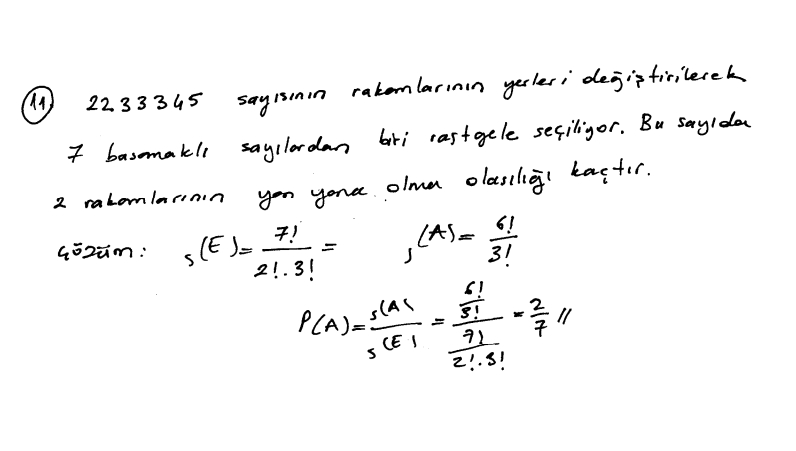 11) 2233345 sayısının rakamlarının yerleri değiştirilerek
7 basamaklı sayılardan biri rastgele seçiliyor. Bu sayıda
2 rakamlarının yan yana olma olasılığı kaçtır.
Çözüm: s(E) = 7! / 2!.3! = s(A) = 6! / 3!
P(A) = s(A) / s(E) = (6! / 3!) / (7! / 2!.3!) = 2/7 //